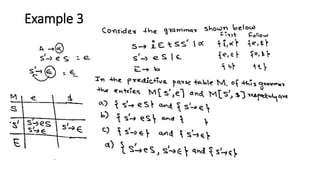 Example 3
Consider the grammar shown below
First Follow
S → iEtSS' | α {i, α} {e, $}
S' → eS | ε {e, ε} {e, $}
E → b {b} {t}
A → α
S' → eS = e
S' → ε = ε
In the predictive parse table M of this grammar
the entries M[S', e] and M[S', $] respectively are
a) {S' → eS} and {S' → ε}
b) {S' → eS} and { }
c) {S' → ε} and {S' → ε}
d) {S' → eS, S' → ε} and {S' → ε}
M e $
S
S' S' → eS S' → ε
S' → ε
E